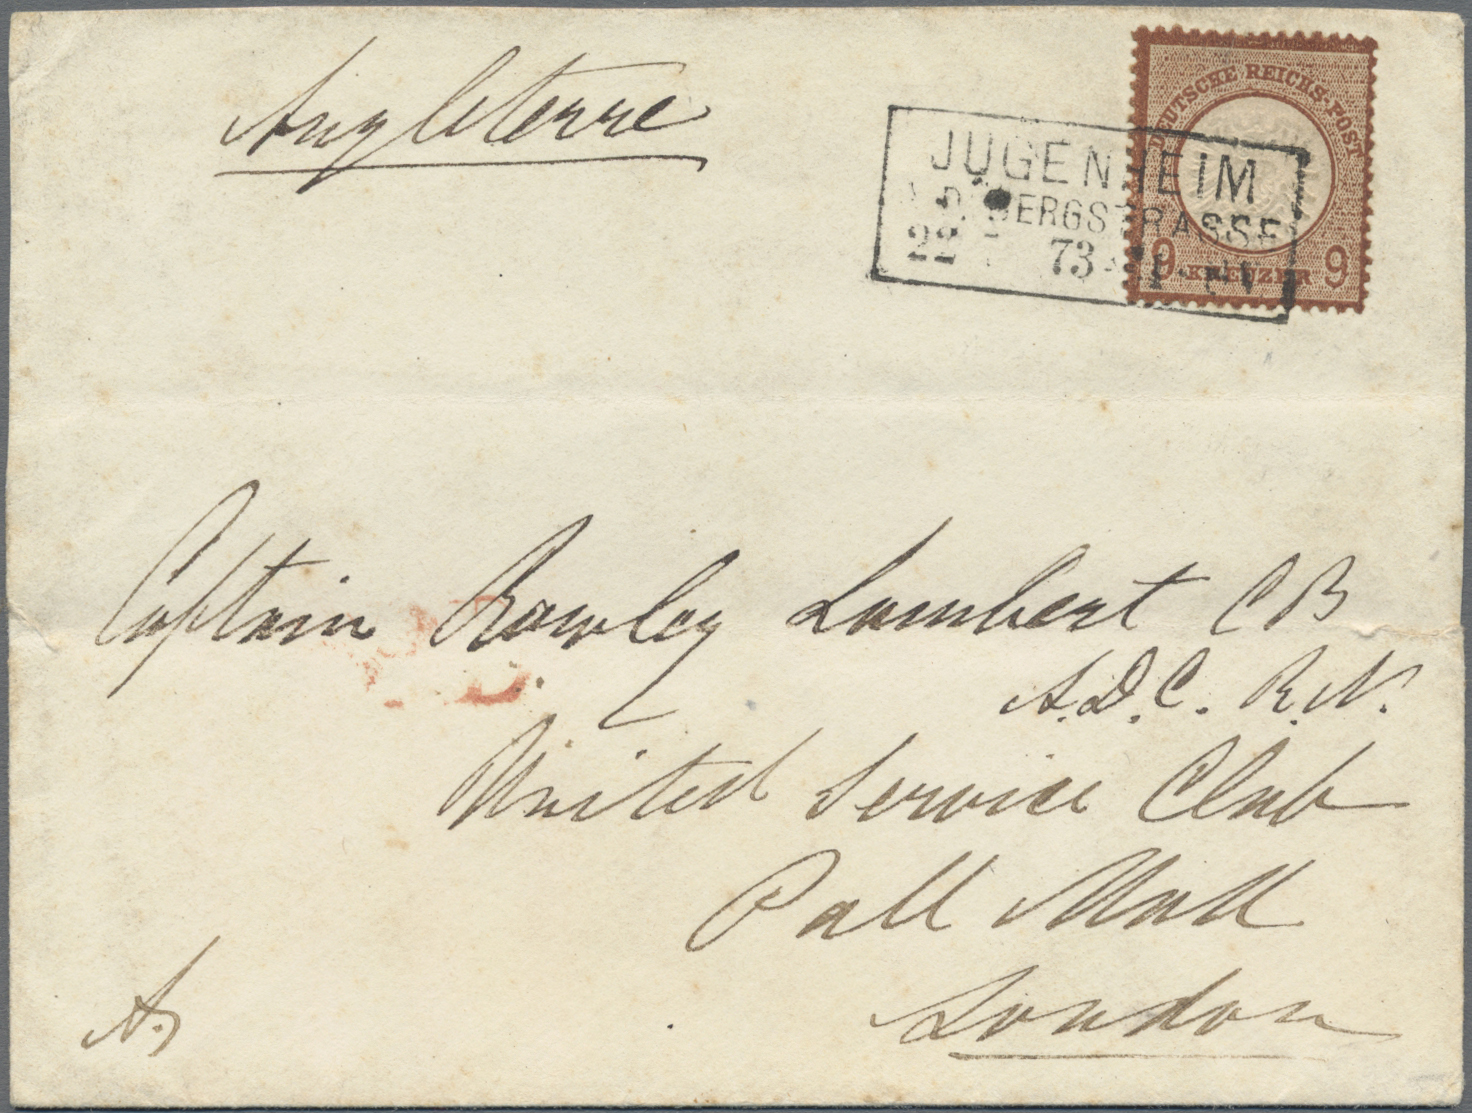 Angleterre
DEUTSCHE REICHS-POST
JUGENHEIM
A. D. BERGSTRASSE
22 73
9 KREUZER 9
Captain Rowley Lambert CB
A.D.C. R.N.
United Service Club
Pall Mall
London